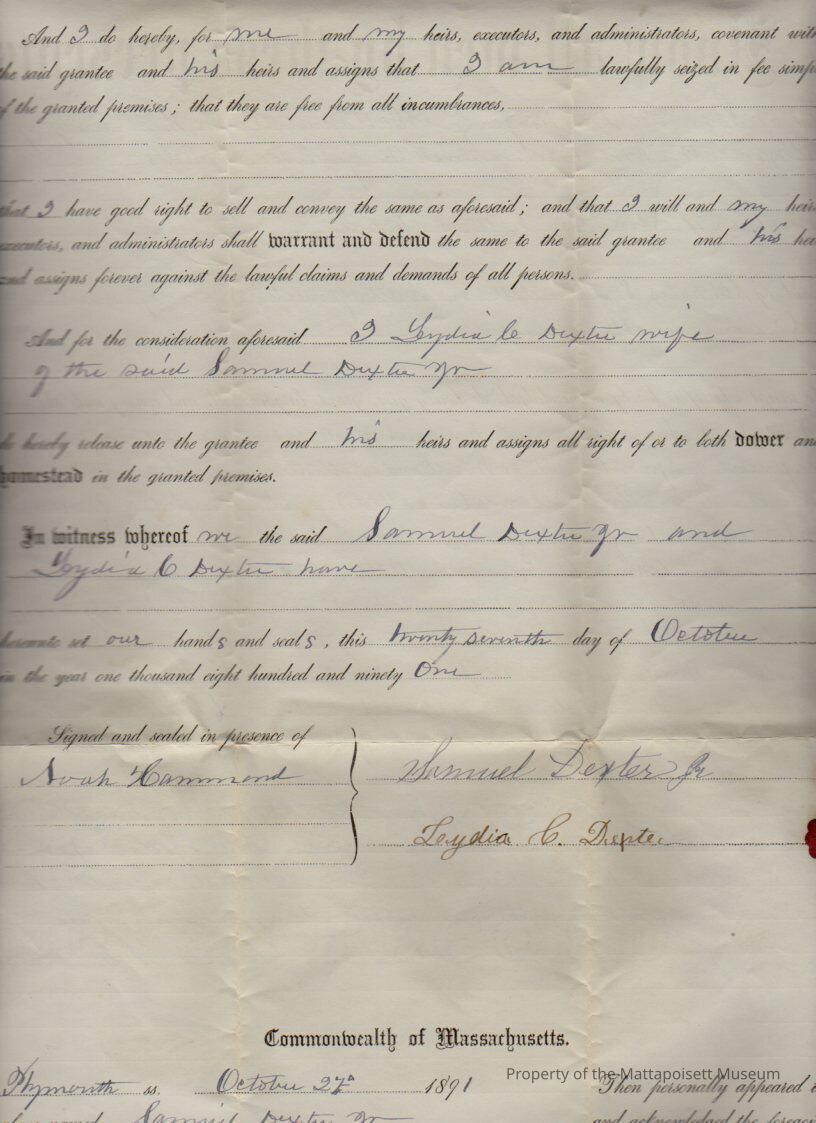 And I do hereby, for me and my heirs, executors, and administrators, covenant with
the said grantee and his heirs and assigns that I am lawfully seized in fee simp
of the granted premises; that they are free from all incumbrances,
that I have good right to sell and convey the same as aforesaid; and that I will and my heirs
executors, and administrators shall warrant and defend the same to the said grantee and his hei
and assigns forever against the lawful claims and demands of all persons.
And for the consideration aforesaid I Lydia C Dexter wife
of the said Samuel Dexter Jr
do hereby release unto the grantee and his heirs and assigns all right of or to both dower and
homestead in the granted premises.
In witness whereof we the said Samuel Dexter Jr and
Lydia C Dexter have
hereunto set our hands and seals, this twenty seventh day of October
in the year one thousand eight hundred and ninety One
Signed and sealed in presence of
Noah Hammond
Samuel Dexter Jr
Lydia C. Dexter
Commonwealth of Massachusetts.
Plymouth ss. October 27th 1891 Then personally appeared
Samuel Dexter Jr and acknowledged the foregoi
Property of the Mattapoisett Museum